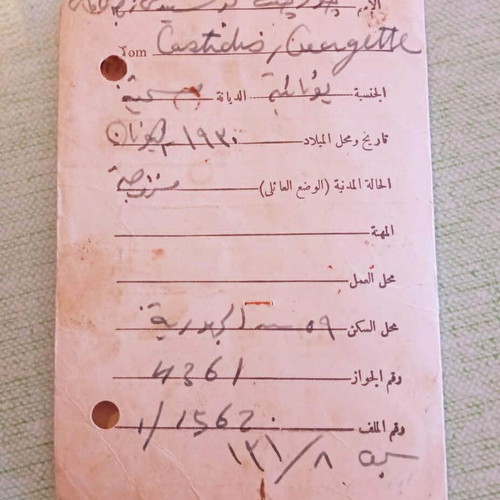 الاسم
Nom Castidis, Georgette
الجنسية يونانية الديانة مسيحية
تاريخ ومحل الميلاد ١٩٣٠ اليونان
الحالة المدنية (الوضع العائلي) متزوجة
المهنة
محل العمل
محل السكن ٥٩ ش الجمهورية
رقم الجواز 4361
رقم الملف 1/1562
١٣١/٨